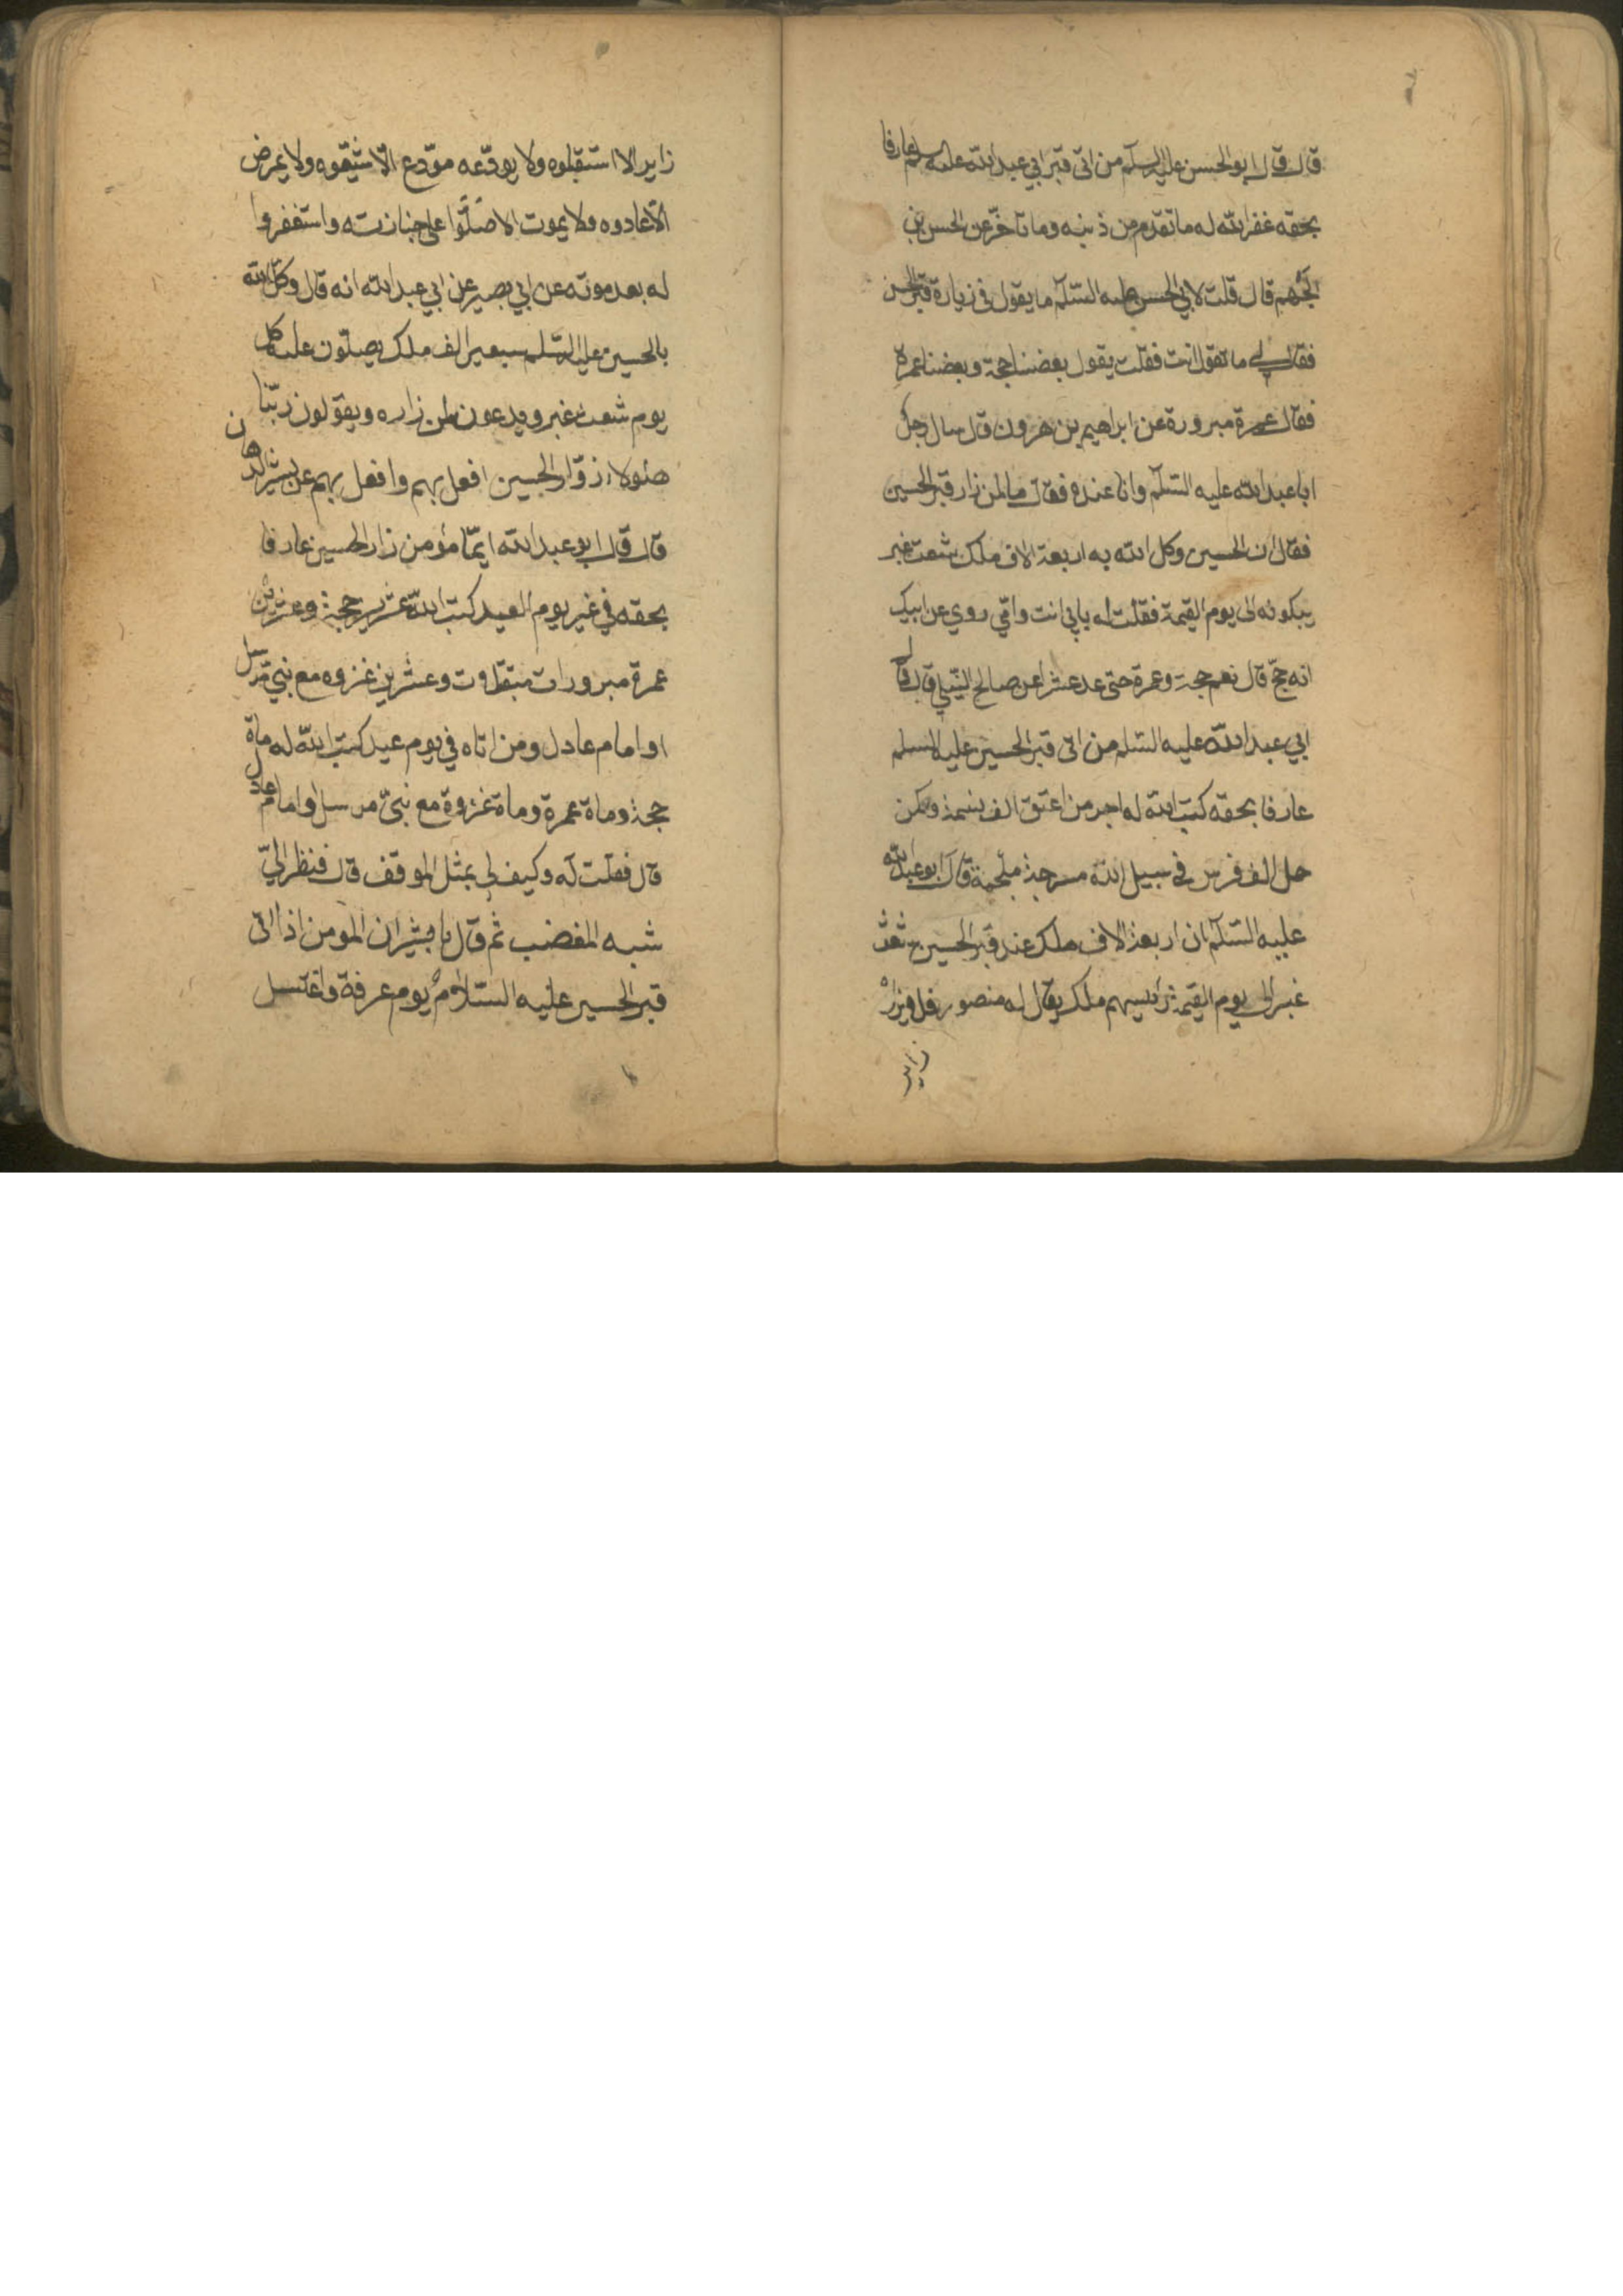 قال قال ابو الحسن عليه السلم من اتى قبر ابي عبد الله عليه السلم عارفا
بحقه غفر الله له ما تقدم من ذنبه وما تاخّر عن الحسن بن
الجَهم قال قلت لابي الحسن عليه السّلم ما يقول في زيارة قبر الحسين
فقال لي ما تقول انت فقلت يقول بعضنا حجة وبعضنا عمرة
فقال عمرة مبرورة عن ابراهيم بن هرون قال سال رجل
ابا عبد الله عليه السّلم وانا عنده فقال ما لمن زار قبر الحسين
فقال ان الحسين وكل الله به اربعة الاف ملك شعث غبر
يبكونه الى يوم القيمة فقلت له بابي انت وامّي روي عن ابيك
انه حجّ قال نعم حجة وعمرة حتى عد عشرا عن صالح النّيلي قال قال
ابي عبد الله عليه السّلم من اتى قبر الحسين عليه السلم
عارفا بحقه كتب الله له اجر من اعتق الف نسمة وكمن
حمل الف فرس في سبيل الله مسرجة ملجمة قال ابو عبد الله
عليه السّلم ان اربعة الاف ملك عند قبر الحسين شعث
غبر الى يوم القيمة رئيسهم ملك يقال له منصور فلا يزاره
زاير
زاير الا استقبلوه ولا يودّعه مودّع الّا شيّعوه ولا يمرض
الّا عادوه ولا يموت الا صلّوا على جنازته واستغفروا
له بعد موته عن ابي بصير عن ابي عبد الله انه قال وكّل الله
بالحسين عليه السّلم سبعين الف ملك يصلّون عليه كل
يوم شعث غبر ويدعون لمن زاره ويقولون ربّنا
هئولاء زوّار الحسين افعل بهم وافعل بهم عن بشير الدهان
قال قال ابو عبد الله ايّما مؤمن زار الحسين عارفا
بحقه في غير يوم العيد كتب الله عشرين حجة وعشرين
عمرة مبرورات متقبّلات وعشرين غزوه مع نبي مرسل
او امام عادل ومن اتاه في يوم عيد كتب الله له ماة
حجة وماة عمرة وماة غزوة مع نبيّ مرسل او امام عادل
قال فقلت له وكيف لي بمثل الموقف قال فنظر اليّ
شبه المغضب ثم قال يا بشير ان المومن اذا اتى
قبر الحسين عليه السّلام يوم عرفة واغتسل